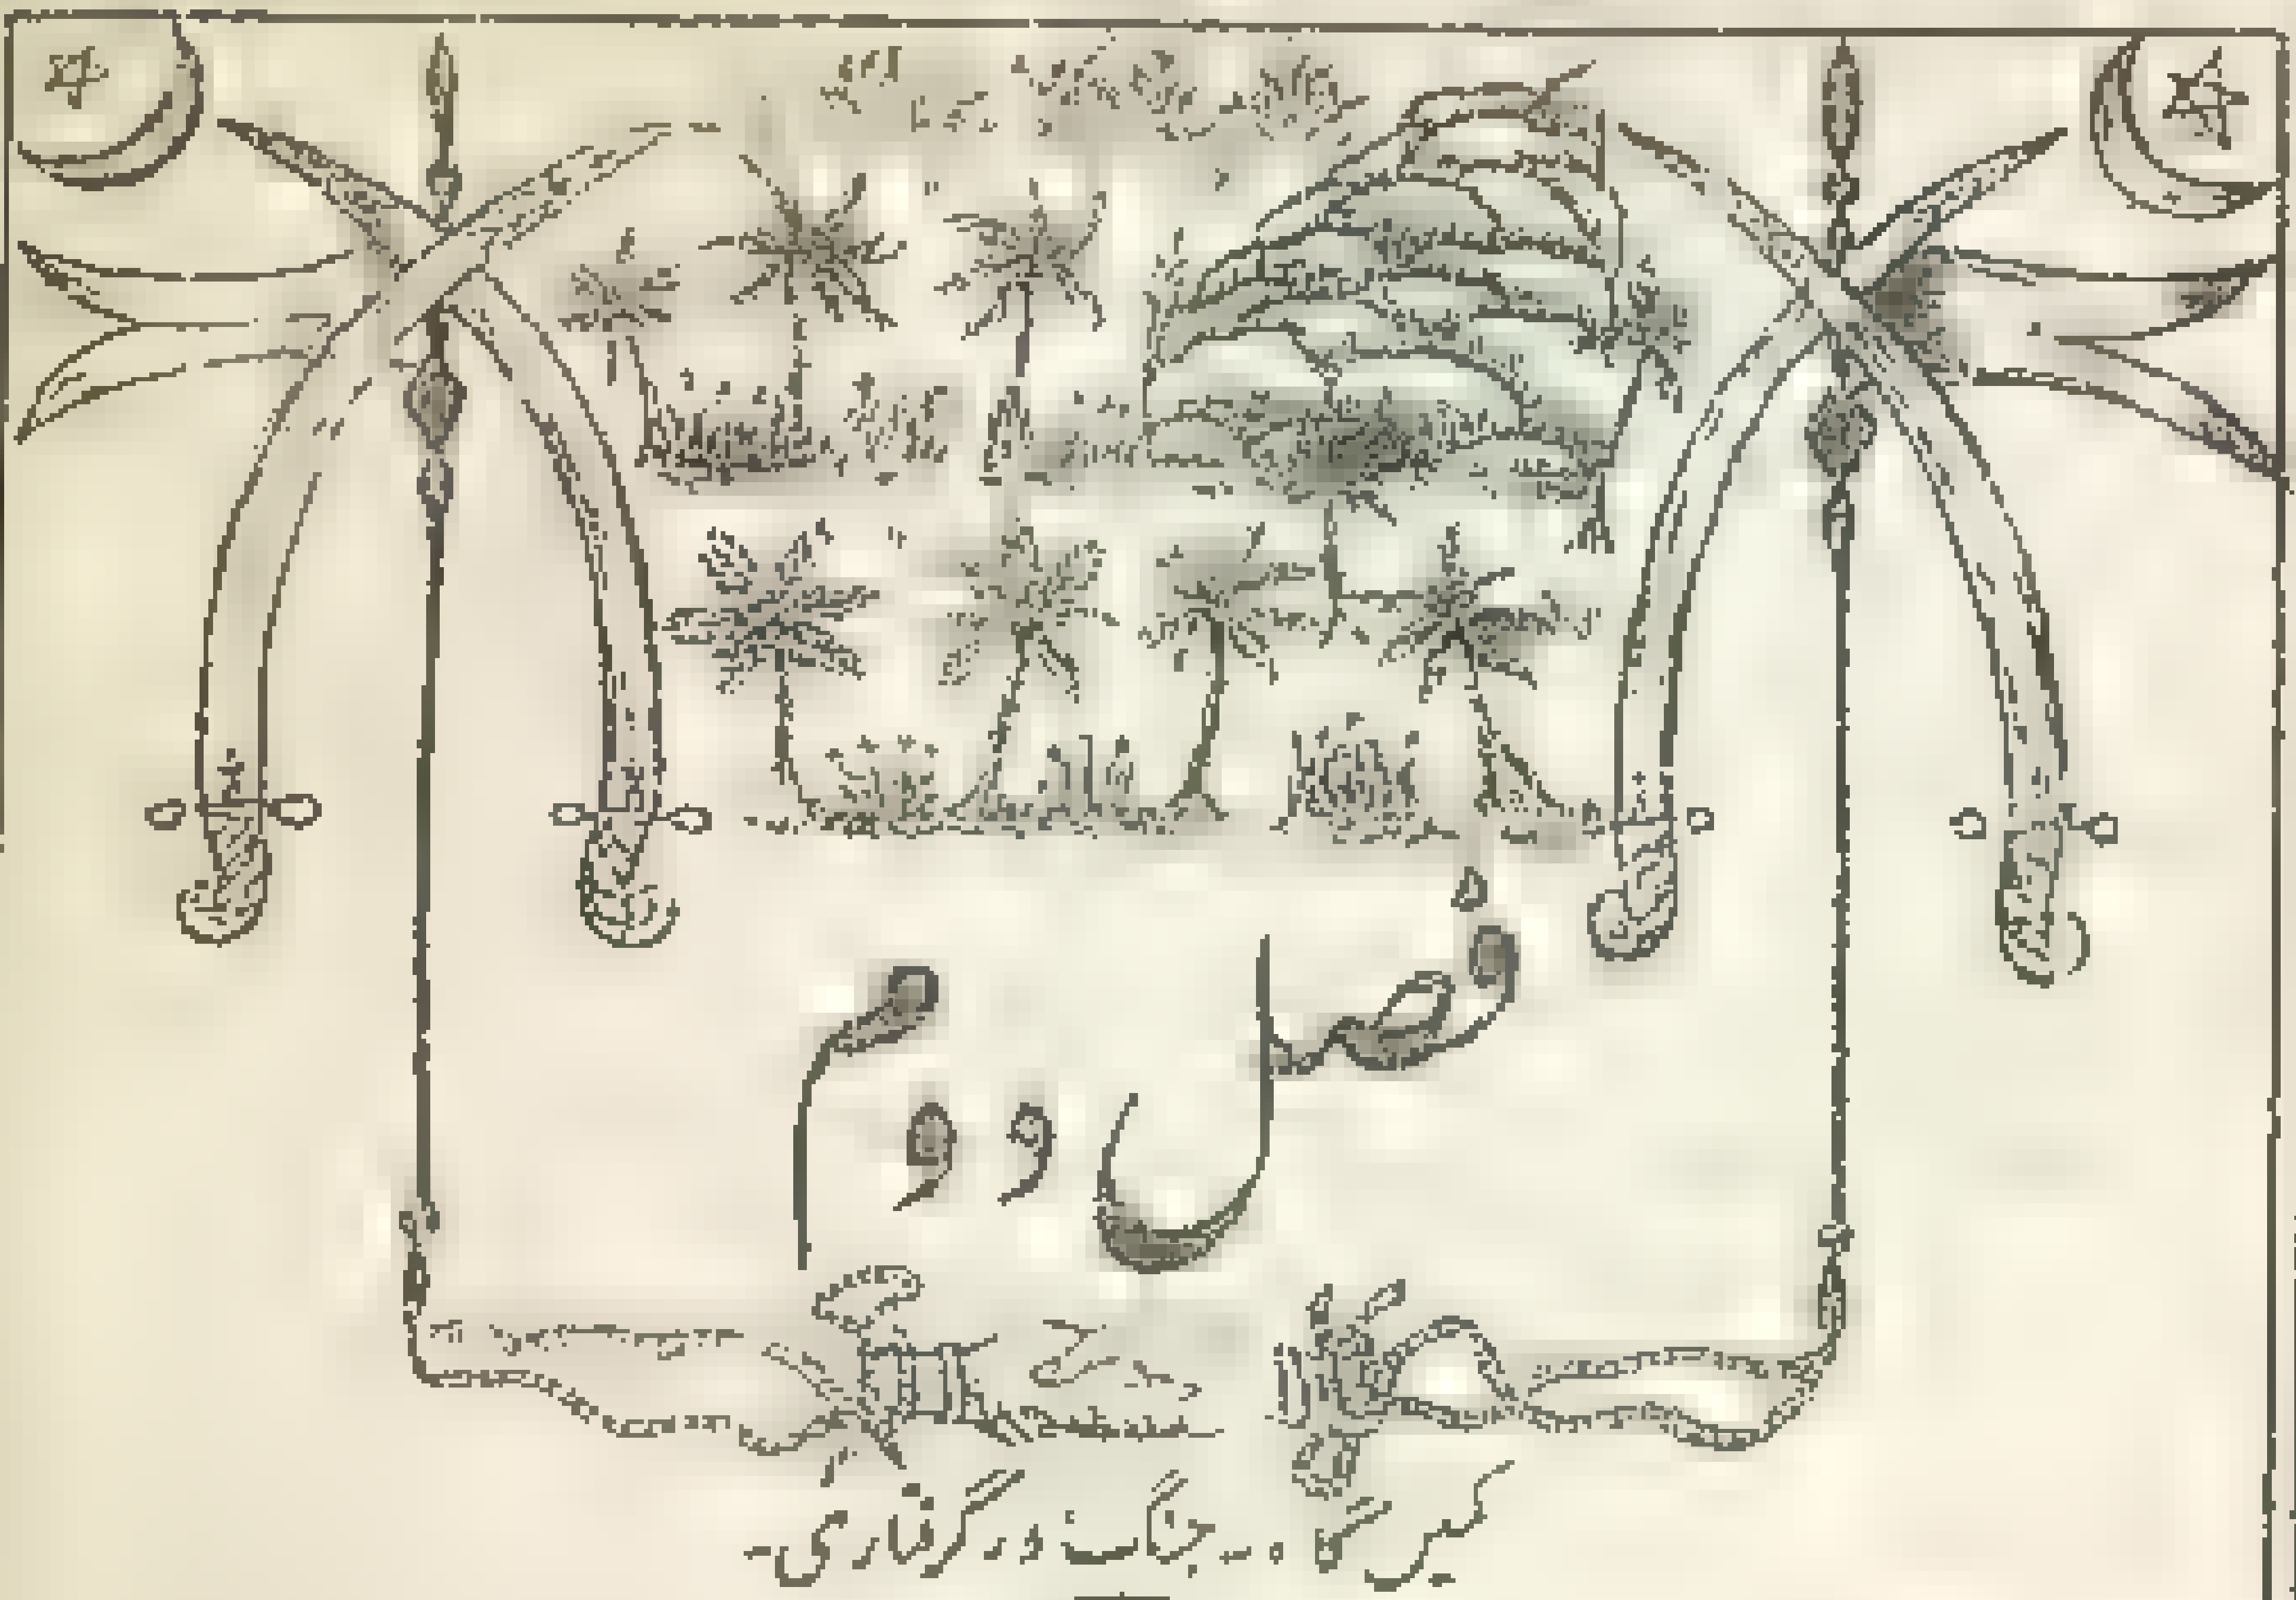 فصل دوم
کمیں گاہ۔ جنگ اور گرفتاری۔